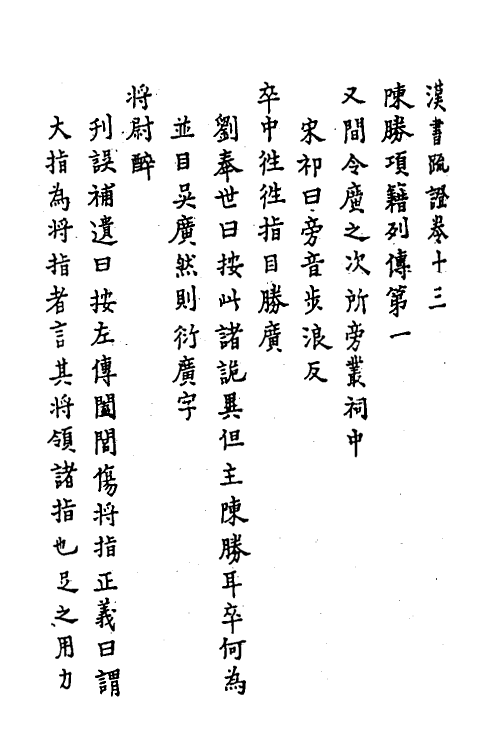 漢書疏證卷十三
陳勝項籍列傳第一
又間令廣之次所旁叢祠中
宋祁曰旁音步浪反
卒中徃徃指目勝廣
劉奉世曰按此諸詭異但主陳勝耳卒何為
並目吳廣然則衍廣字
将尉醉
刋誤補遺曰按左傳闔閭傷将指正義曰謂
大指為将指者言其将領諸指也足之用力